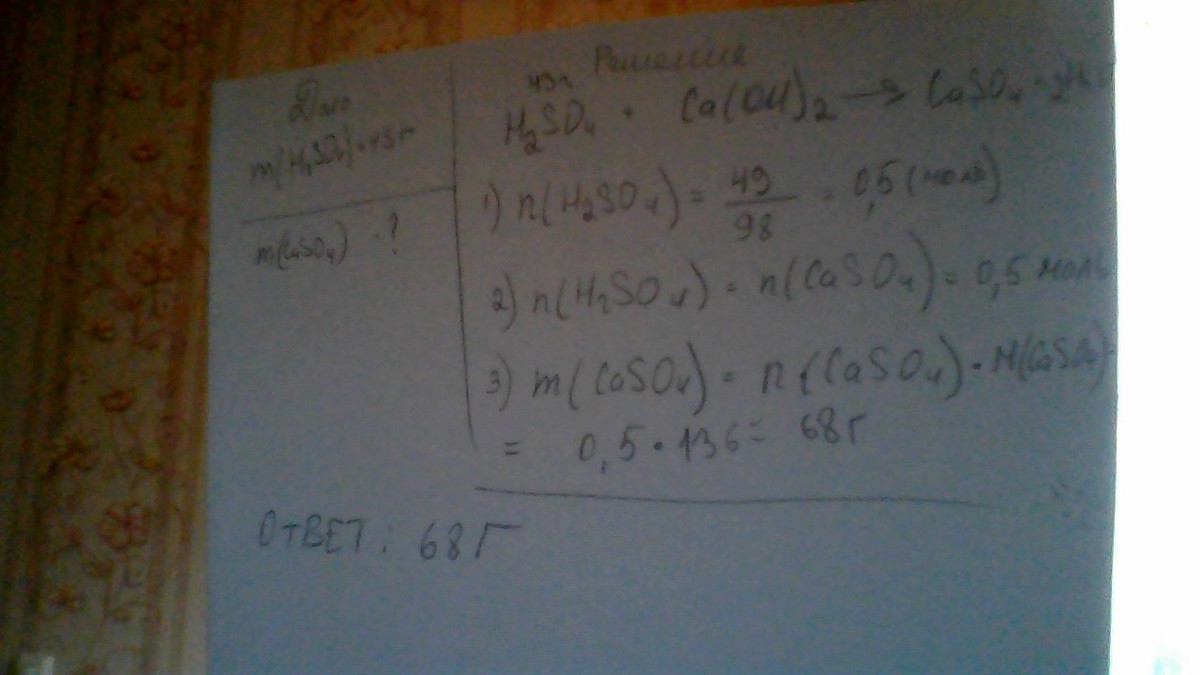 Дано
m(H₂SO₄)=49г
m(CaSO₄) -?
Решение
49г
H₂SO₄ + Ca(OH)₂ → CaSO₄ + 2H₂O
1) n(H₂SO₄) = 49/98 = 0,5 (моль)
2) n(H₂SO₄) = n(CaSO₄) = 0,5 моль
3) m(CaSO₄) = n(CaSO₄)·M(CaSO₄)=
= 0,5·136= 68г
ОТВЕТ: 68Г